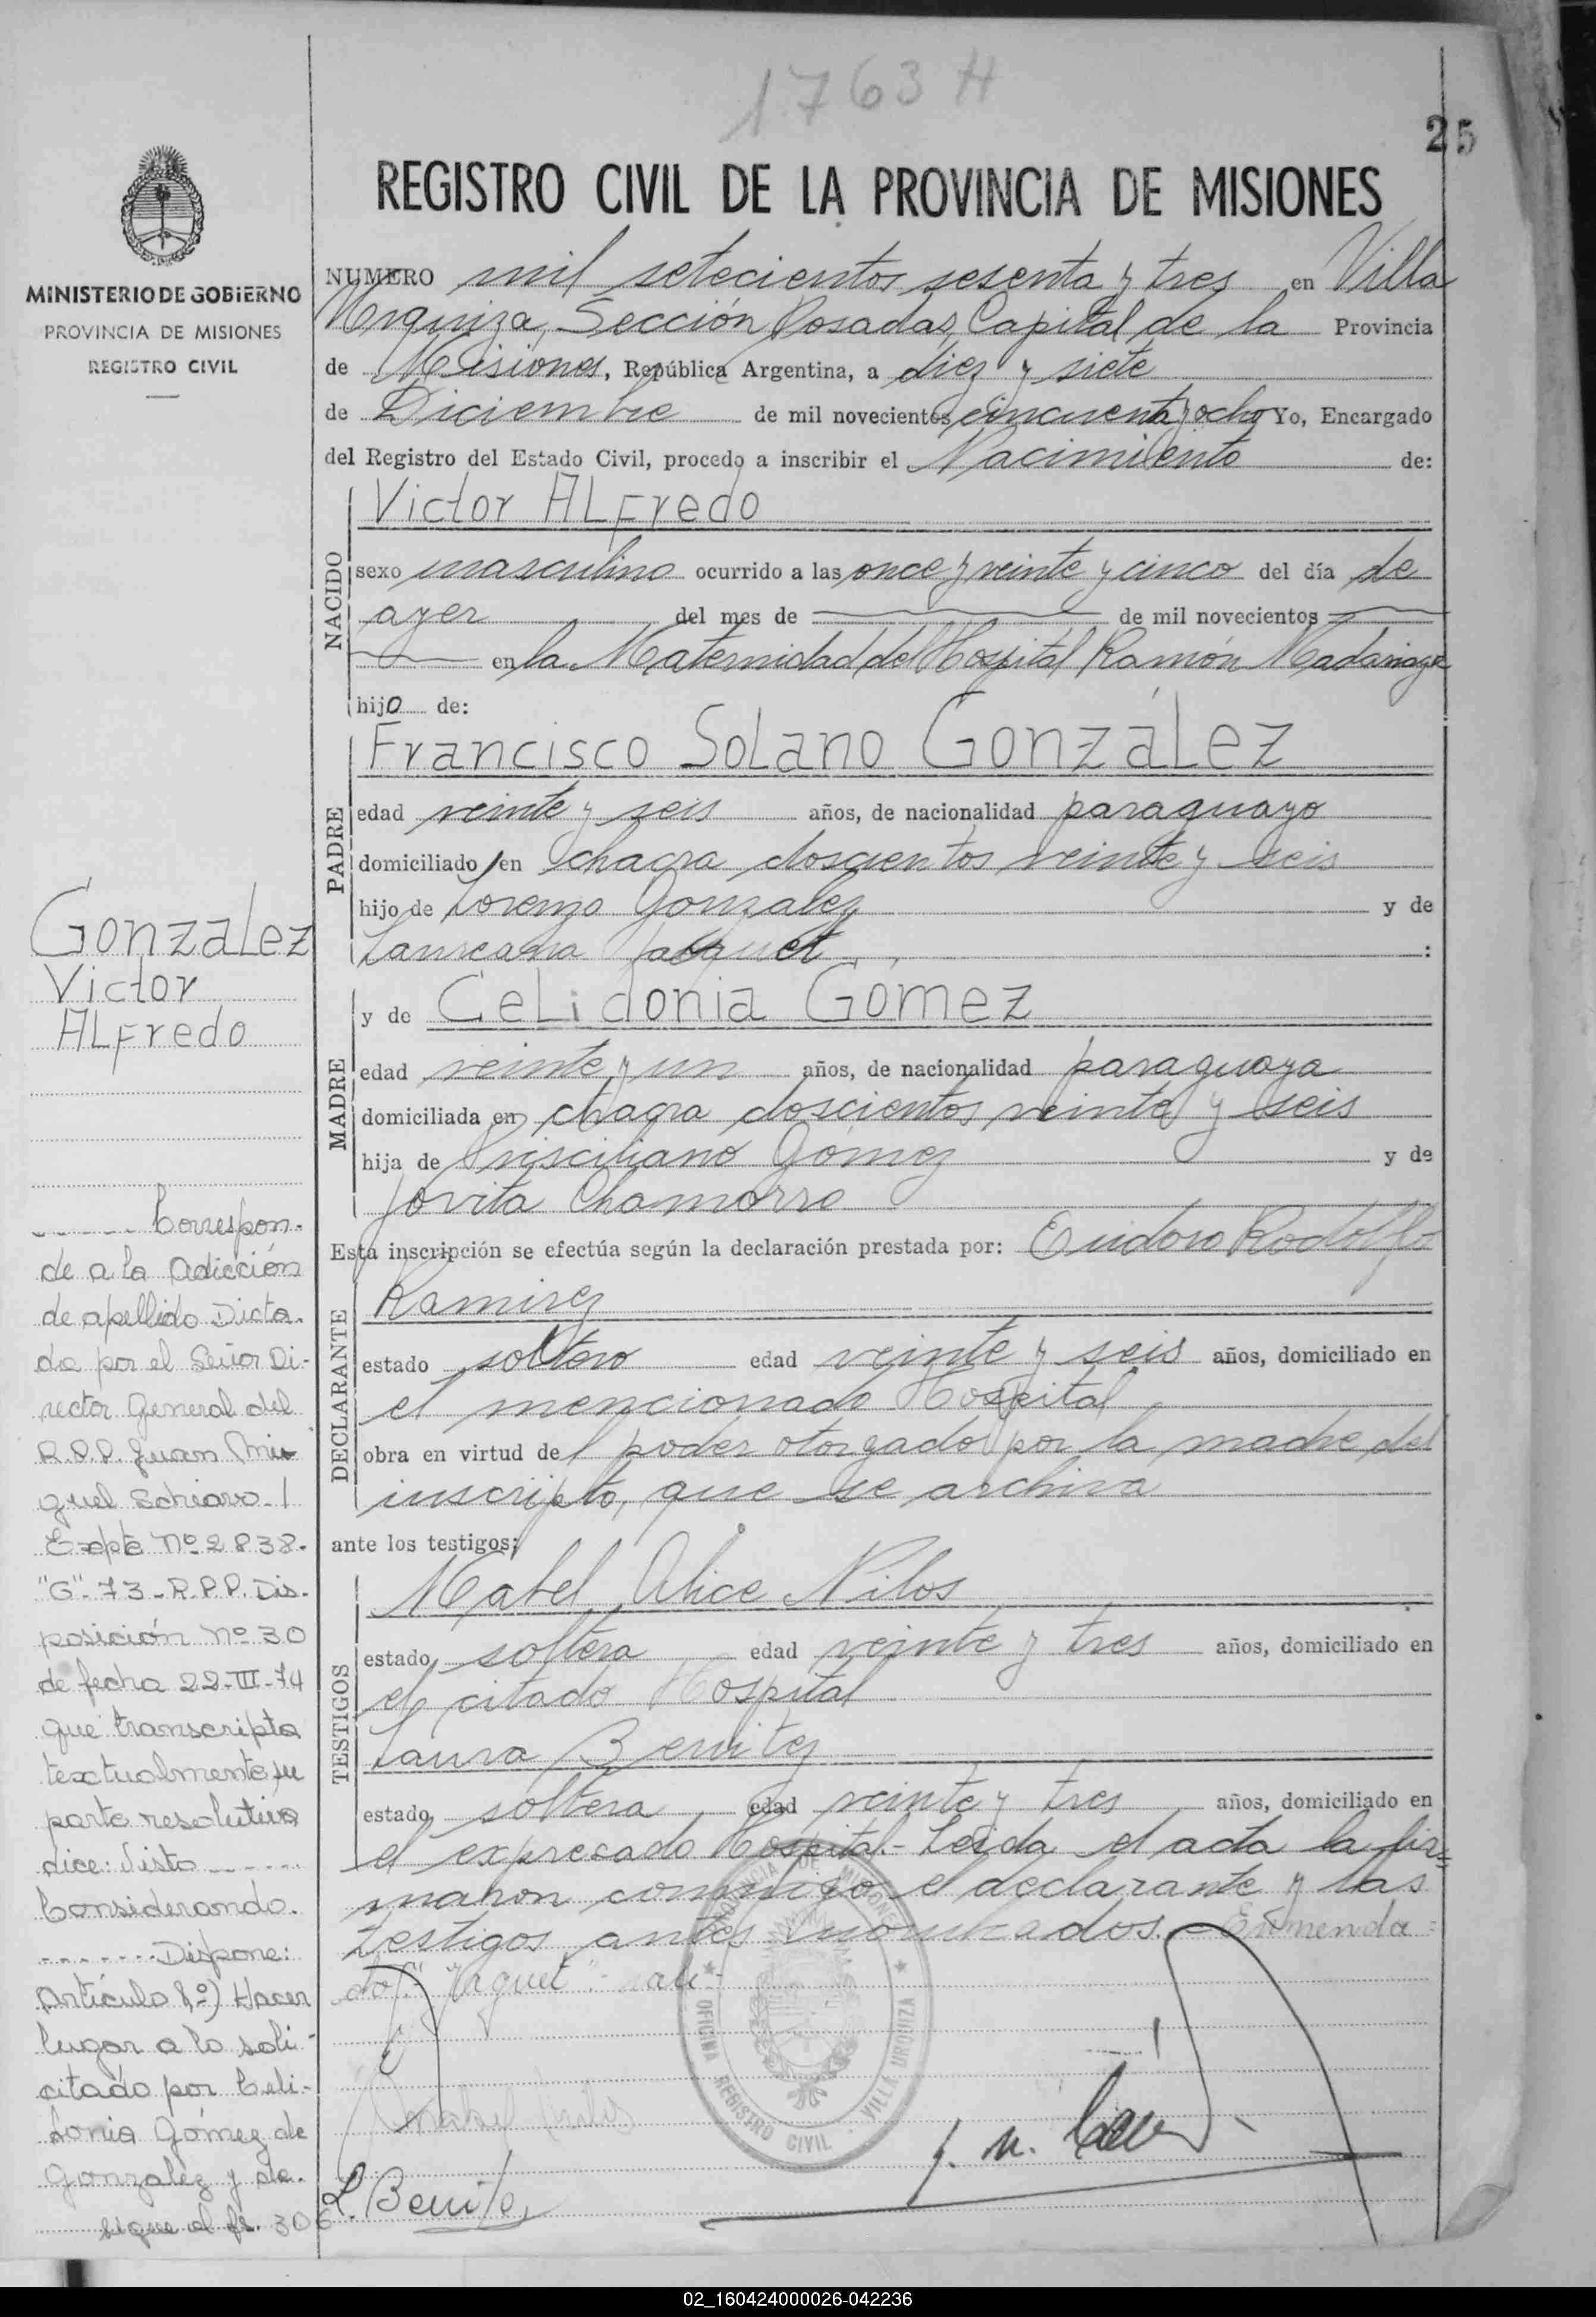 1763 H
25
REGISTRO CIVIL DE LA PROVINCIA DE MISIONES
MINISTERIO DE GOBIERNO
PROVINCIA DE MISIONES
REGISTRO CIVIL
NUMERO mil setecientos sesenta y tres en Villa
Urquiza, Sección Posadas, Capital de la Provincia
de Misiones, República Argentina, a diez y siete
de Diciembre de mil novecientos cincuenta y ocho Yo, Encargado
del Registro del Estado Civil, procedo a inscribir el Nacimiento de:
NACIDO
Victor ALFredo
sexo masculino ocurrido a las once y veinte y cinco del día de
ayer del mes de de mil novecientos
en la Maternidad del Hospital Ramón Madariaga
hijo de:
PADRE
Francisco SoLano GonzáLez
edad veinte y seis años, de nacionalidad paraguayo
domiciliado en chacra doscientos veinte y seis
hijo de Lorenzo Gonzalez y de
Laureana Jaquet :
MADRE
y de CeLidonia Gómez
edad veinte y un años, de nacionalidad paraguaya
domiciliada en chacra doscientos veinte y seis
hija de Prisciliano Gómez y de
Jovita Chamorro
Esta inscripción se efectúa según la declaración prestada por: Eudoro Rodolfo
DECLARANTE
Ramirez
estado soltero edad veinte y seis años, domiciliado en
el mencionado Hospital
obra en virtud del poder otorgado por la madre del
inscripto, que se archiva
ante los testigos:
TESTIGOS
Mabel Alice Nilos
estado soltera edad veinte y tres años, domiciliado en
el citado Hospital
Laura Benitez
estado soltera edad veinte y tres años, domiciliado en
el expresado Hospital.- Leida el acta la fir=
maron conmigo el declarante y las
testigos antes nombrados.- Enmenda=
do: "Jaquet"- vale-
PROVINCIA DE MISIONES
OFICINA REGISTRO CIVIL VILLA URQUIZA
L. Benitez
GonzaLez
Victor
ALFredo
------ Correspon-
de a la Adicción
de apellido Dicta-
da por el Señor Di-
rector General del
R.P.P. Juan Mi-
guel Schiavo-/
Expte Nº 2838-
"G"-73-R.P.P. Dis-
posición Nº 30
de fecha 22-III-74
que transcripta
textualmente su
parte resolutiva
dice: Visto ------
Considerando.
------- Dispone:
Artículo 1º) Hacer
lugar a lo soli-
citado por Celi-
donia Gómez de
Gonzalez y de-
sigue al fs. 306
02_160424000026-042236